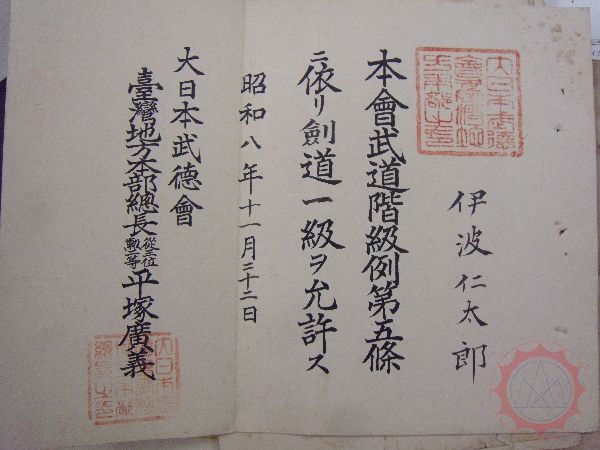 伊波仁太郎
本會武道階級例第五條
ニ依リ劍道一級ヲ允許ス
昭和八年十一月二十二日
大日本武德會
臺灣地方本部總長
從三位
勲二等
平塚廣義